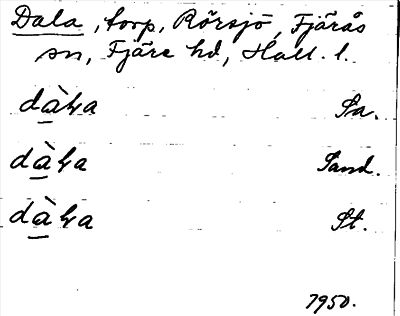 Dala, torp, Rörsjö, Fjärås
sn, Fjäre hd, Hall. l.
dàⱡa Sa.
dàⱡa Sand.
dàⱡa St.
1950.